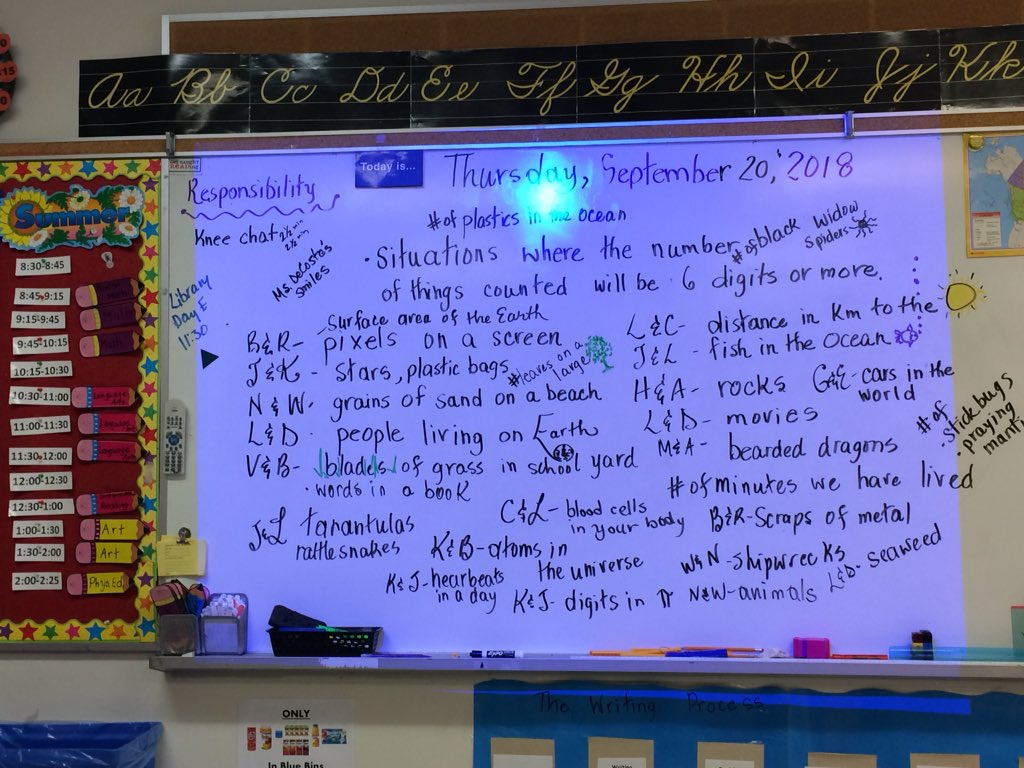 Aa Bb Cc Dd Ee Ff Gg Hh Ii Jj Kk
Today is...
Thursday, September 20, 2018
Responsibility
Knee chat 2½ min
2½ min
# of plastics in the ocean
Ms. DeCosta's
smiles
· Situations where the number
of things counted will be 6 digits or more.
# of black widow
spiders
Library
Day E
11:30
Surface area of the Earth
B&R- pixels on a screen
J&K - stars, plastic bags
# leaves on a
large
N & W- grains of sand on a beach
L&D - people living on Earth
V&B- blades of grass in school yard
· words in a book
L&C- distance in Km to the
J&L - fish in the ocean
H&A- rocks
G&E- cars in the
world
L&D- movies
M&A- bearded dragons
# of
· stick bugs
· praying
manti
# of minutes we have lived
J&L tarantulas
rattlesnakes
C&L- blood cells
in your body
B&R-Scraps of metal
K&B-atoms in
the universe
W&N-shipwrecks
L&D- seaweed
K&J-hearbeats
in a day
K&J- digits in π
N&W-animals
Summer
8:30-8:45
8:45-9:15
9:15-9:45
Math
9:45-10:15
Math
10:15-10:30
10:30-11:00
Language Arts
11:00-11:30
Language
11:30-12:00
Language
12:00-12:30
12:30-1:00
Reading
1:00-1:30
Art
1:30-2:00
Art
2:00-2:25
Phys.Ed.
expo
The Writing Process
ONLY
In Blue Bins